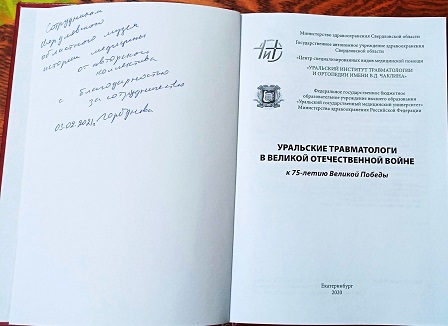 Сотрудникам
Свердловского
областного музея
истории медицины
от авторского
коллектива
с благодарностью
за сотрудничество
03.02.2021, Горбунова
Министерство здравоохранения Свердловской области
Государственное автономное учреждение здравоохранения
Свердловской области
«Центр специализированных видов медицинской помощи
«УРАЛЬСКИЙ ИНСТИТУТ ТРАВМАТОЛОГИИ
И ОРТОПЕДИИ ИМЕНИ В.Д. ЧАКЛИНА»
Федеральное государственное бюджетное
образовательное учреждение высшего образования
«Уральский государственный медицинский университет»
Министерства здравоохранения Российской Федерации
УРАЛЬСКИЕ ТРАВМАТОЛОГИ
В ВЕЛИКОЙ ОТЕЧЕСТВЕННОЙ ВОЙНЕ
к 75-летию Великой Победы
Екатеринбург
2020